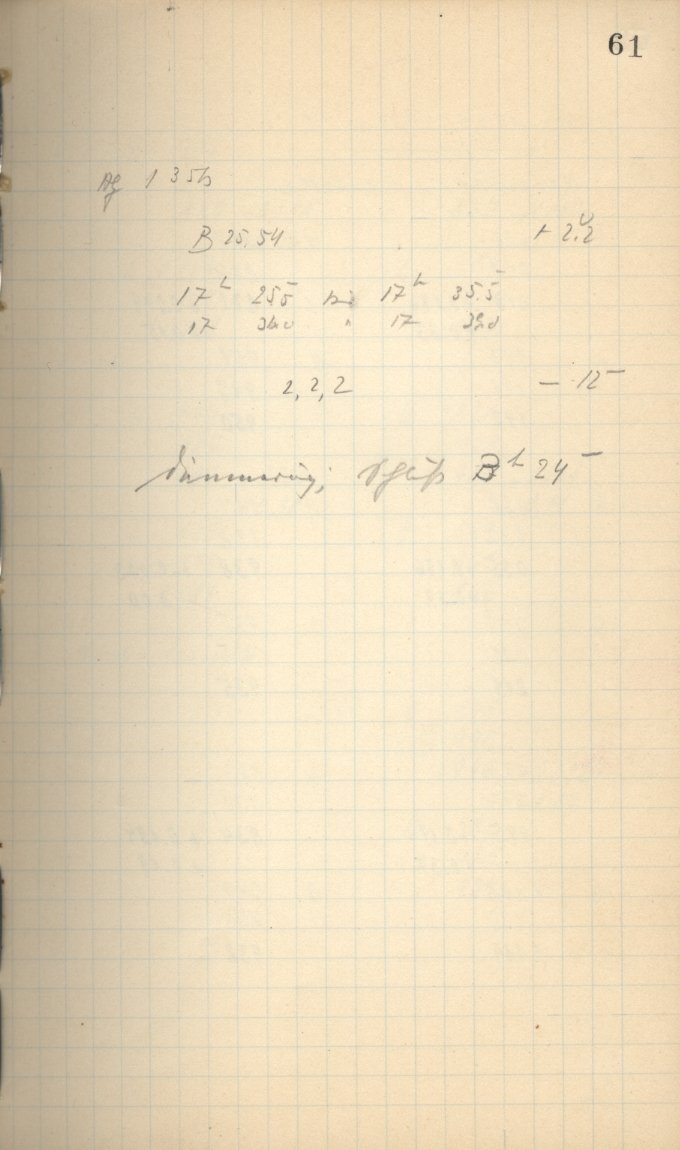 61
Ag 1 35b
B 25.54 + 2.2
17h 25.5 bis 17h 35.5
17 34.0 " 17 39.0
2, 2, 2 — 12
Dämmerung; Schluß h 24